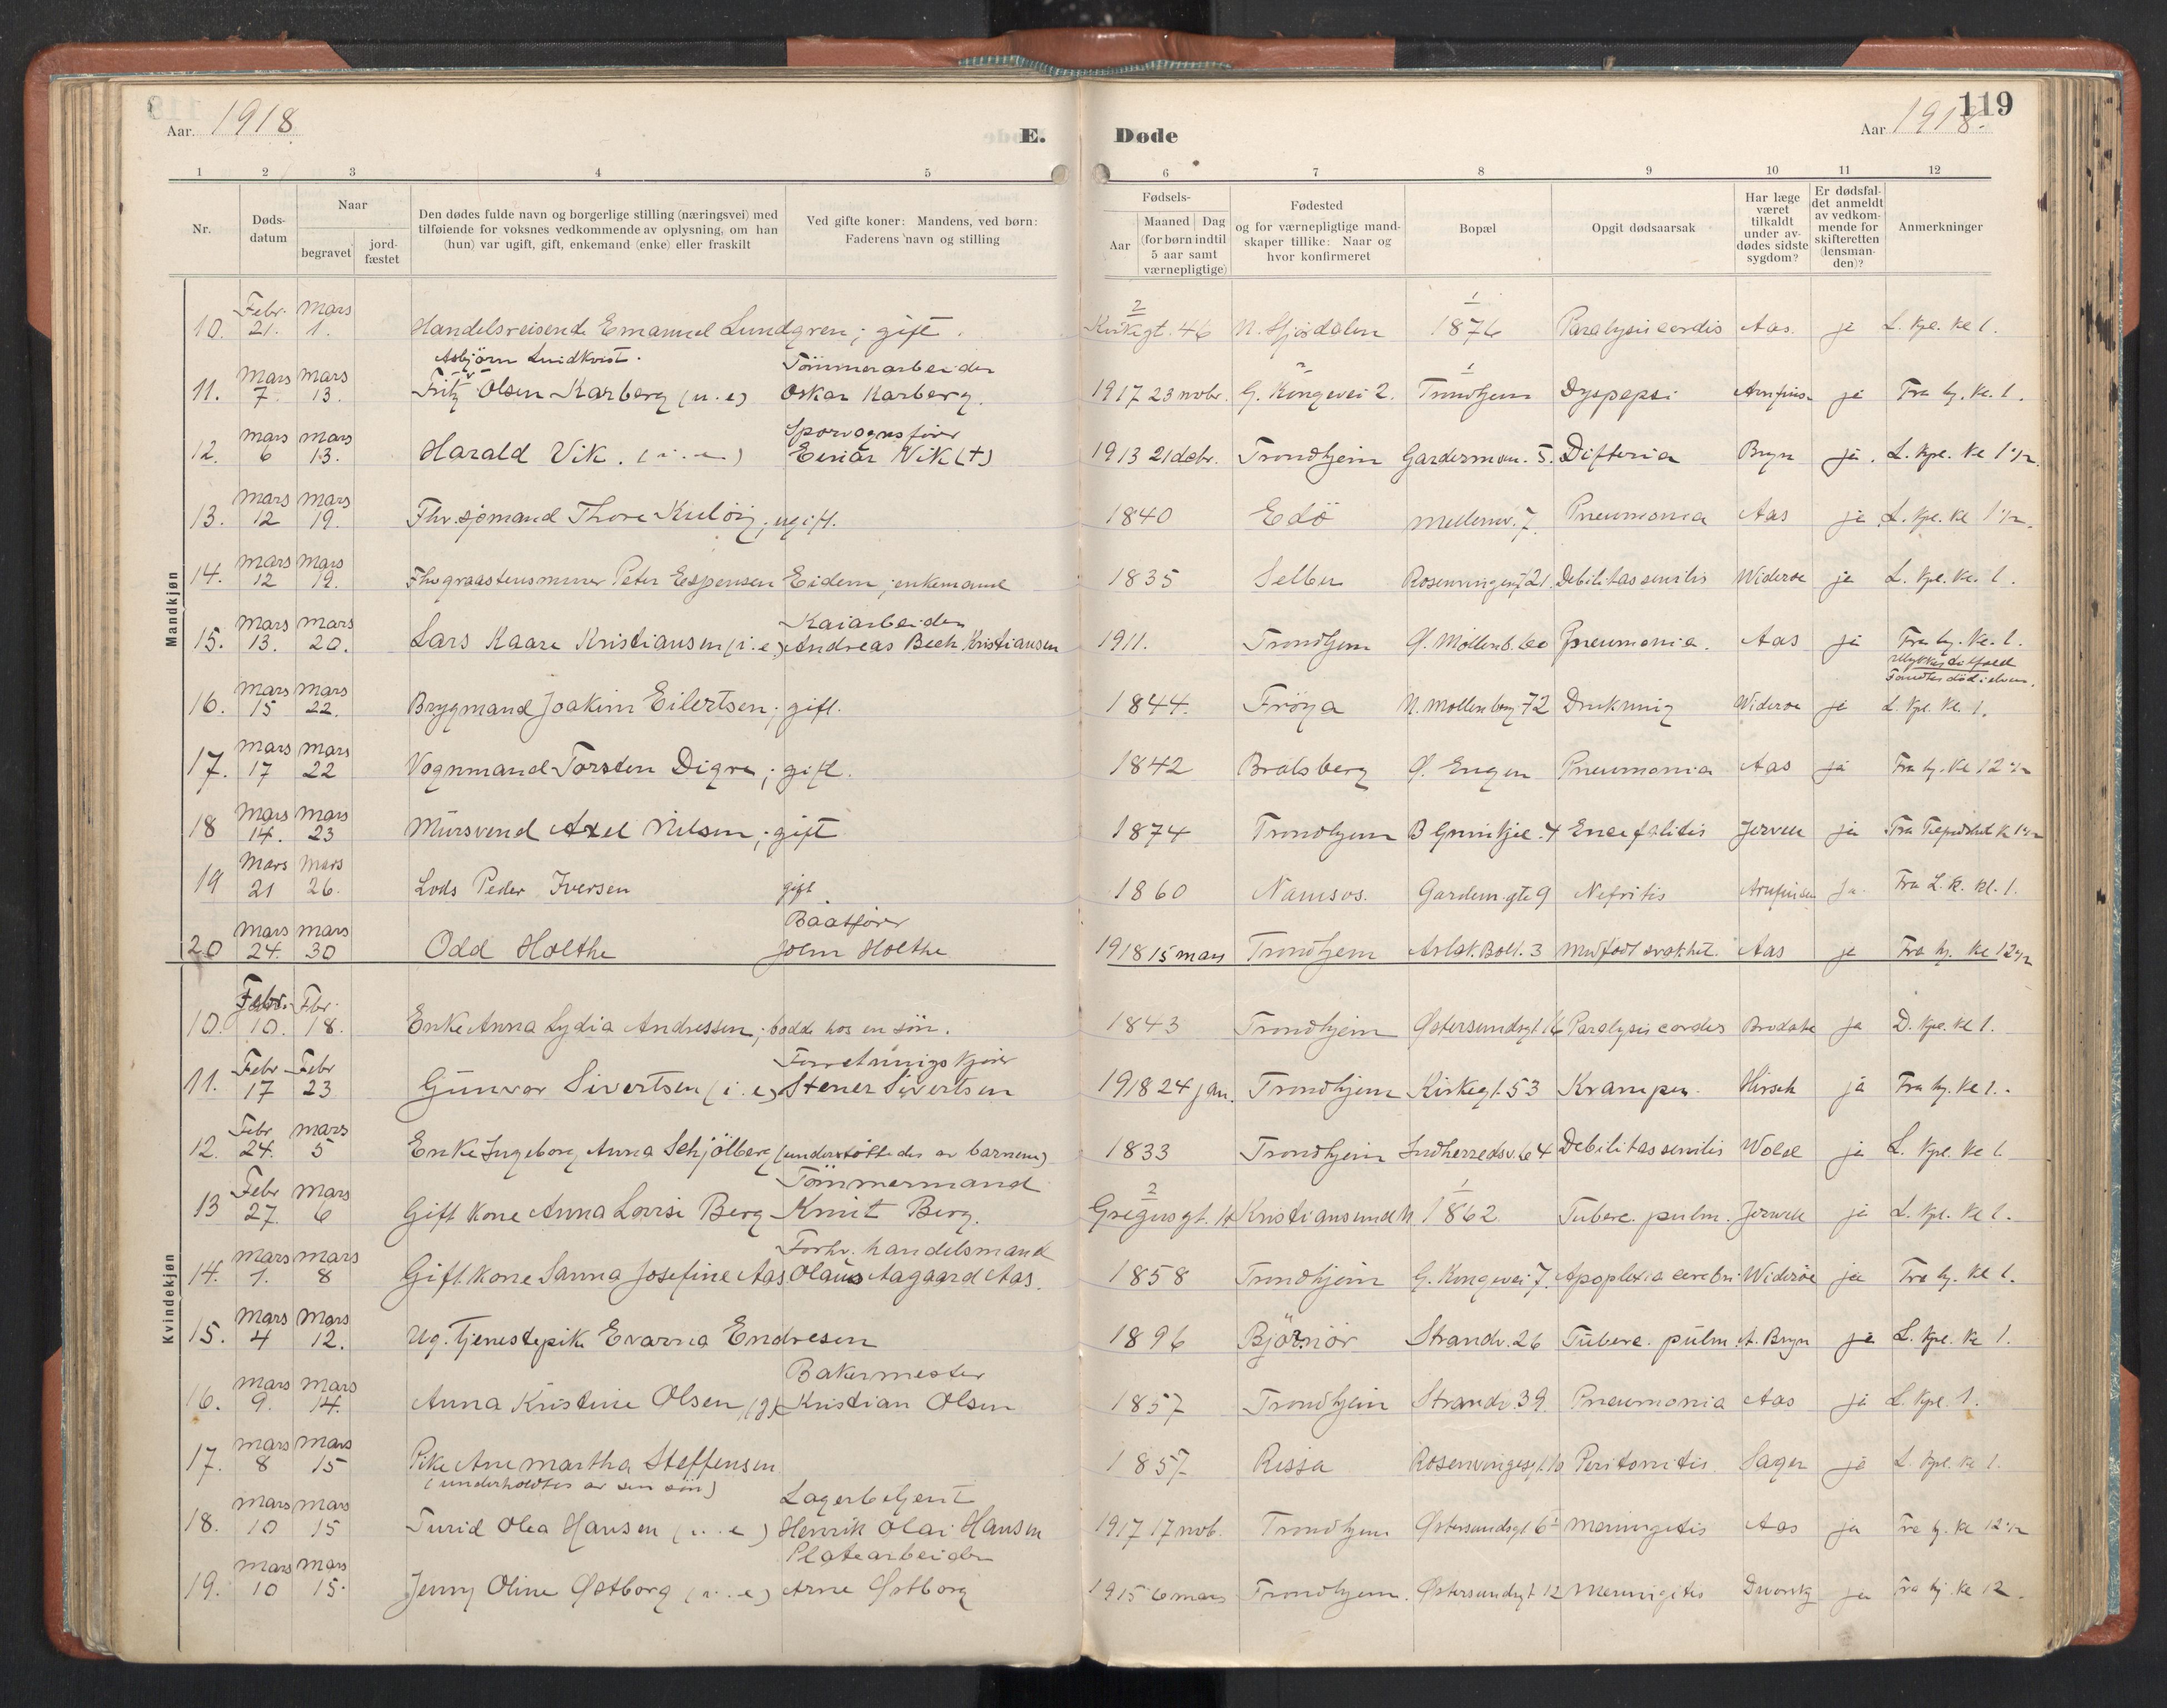 119
Aar. 1918
E. Døde
Aar 1918.
1 2 3 4 5 6 7 8 9 10 11 12
Nr.
Døds-
datum
Naar
begravet
jord-
fæstet
Den dødes fulde navn og borgerlige stilling (næringsvei) med
tilføiende for voksnes vedkommende av oplysning, om han
(hun) var ugift, gift, enkemand (enke) eller fraskilt
Ved gifte koner: Mandens, ved børn:
Faderens navn og stilling
Fødsels-
Aar
Maaned Dag
(for børn indtil
5 aar samt
værnepligtige)
Fødested
og for værnepligtige mand-
skaper tillike: Naar og
hvor konfirmeret
Bopæl
Opgit dødsaarsak
Har læge
været
tilkaldt
under av-
dødes sidste
sygdom?
Er dødsfal-
det anmeldt
av vedkom-
mende for
skifteretten
(lensman-
den)?
Anmerkninger
Mandkjøn
Febr. Mars 2 1
10. 21. 1. Handelsreisende Emanuel Lundgren; gift. Kirkegt. 46 1876 Paralysis cordis Aas. ja L. Kpl. Kl 1.
Asbjörn Lundkvist. Tömmerarbeider
Mars Mars
11. 7. 13. Fritz Olsen Karberg (u.e) Oskar Karberg. 1917 23 novbr. G. Kongevei 2. Trondhjem Dyspepsi Arnfinsen ja Fra hj. Kl. 1.
Mars Mars Sporvognsfører
12. 6 13. Harald Vik. (i.e) Einar Vik (+) 1913 21 dcbr. Trondhjem Gardermon. 5. Difteria Bryn ja. L. Kpl. Kl 1 1/2.
Mars Mars
13. 12 19. Fhv. sjömand Thore Kulöy; ugift. 1840 Edö Mellemv. 7. Pneumonia Aas ja L. Kpl. Kl 1 1/2.
Mars Mars
14. 12 19. Fhv graastensmurer Peter Espensen Eidem; enkemand 1835 Selbu Rosenvingesgt 21. Debilitas senilis Wideroe ja L. Kpl. Kl. 1.
Mars Mars Kaiarbeider
15. 13. 20. Lars Kaare Kristiansen (i.e) Andreas Bech Kristiansen 1911. Trondhjem Ø. Möllenb. 60 Pneumonia. Aas ja Fra hj. Kl. 1.
Ulykkestilfælde
Fandtes död i elven.
Mars Mars
16. 15 22. Brygmand Joakim Eilertsen; gift. 1844. Fröya N. Mollenberg 72 Drukning Wideroe ja L. Kpl. Kl. 1.
Mars Mars
17. 17 22 Vognmand Torsten Digre; gift. 1842 Bratsberg Ø. Engen Pneumonia Aas ja Fra hj. Kl 12 1/2
Mars Mars
18 14. 23 Mursvend Axel Nilsen; gift 1874 Trondhjem 4 Encefalitis Jervell ja
Mars Mars
19 21 26. Lods Peder Iversen gift. 1860 Namsos. Gardem.gte 9 Nefritis Arnfinsen Ja. Fra L. K. kl. 1.
Mars Mars Baatfører
20 24. 30 Odd Holthe John Holthe 1918 15 mars Trondhjem Aslak Bolt. 3 Medfödt svakhet. Aas ja Fra hj. Kl 12 1/2
Kvindekjøn
Febr. Fbr.
10. 10. 18. Enke Anna Lydia Andressen; bodde hos en sön. 1843 Trondhjem Østersundsgt. 16 Paralysis cordis ja D. Kpl. Kl 1.
Febr Febr Forretningskjører
11. 17 23 Gunvor Sivertsen (i.e) Stener Sivertsen 1918 24 jan. Trondhjem Kirkegt. 53 Kramper. Hirsch ja Fra hj. Kl 1.
Febr Mars
12. 24. 5 Enke Ingeborg Anna Schjölberg (understöttedes av barnene) 1833 Trondhjem Indherredsv. 64 Debilitas senilis ja L. Kpl. Kl 1.
Febr Mars Tömmermand 2 1
13 27. 6 Gift kone Anna Lovise Berg Knut Berg. Gregusgt. 14 Kristiansund N. 1862 Tuberc. pulm. Jervell ja L. Kpl. Kl 1.
Mars Mars Forhv. handelsmand
14. 1. 8 Gift kone Sanna Josefine Aas Olaus Aagaard Aas. 1858 Trondhjem G. Kongevei 7. Apoplexia cerebri Wideröe ja Fra hj. Kl 1.
Mars Mars
15. 4 12. Ug. Tjenestepike Evarna Endresen 1896 Björnör Strandv. 26 Tuberc. pulm. A. Bryn ja L. Kpl. Kl 1.
Mars Mars Bakermester
16. 9. 14. Anna Kristine Olsen (g). Kristian Olsen 1857 Trondhjem Strandv. 39. Pneumonia Aas ja L. Kpl. 1.
Mars Mars
17. 8 15 Pike Ane Martha Steffensen 1857 Rissa Rosenvingesgt. 10 Peritonitis. Sager ja L. Kpl. Kl 1.
(underholdtes av sin sön)
Mars Mars Lagerbetjent
18. 10 15 Turid Olea Hansen (u.e) Henrik Olai Hansen 1917 17 novb. Trondhjem Østersundsgt 6 Meningitis Aas ja Fra hj. Kl 12 1/2
Mars Mars Platearbeider
19. 10 15. Jenny Oline Østborg (u.e) Arne Østborg 1915 6 mars Trondhjem. Østersundsgt 12 Meningitis ja Fra hj. Kl 12.